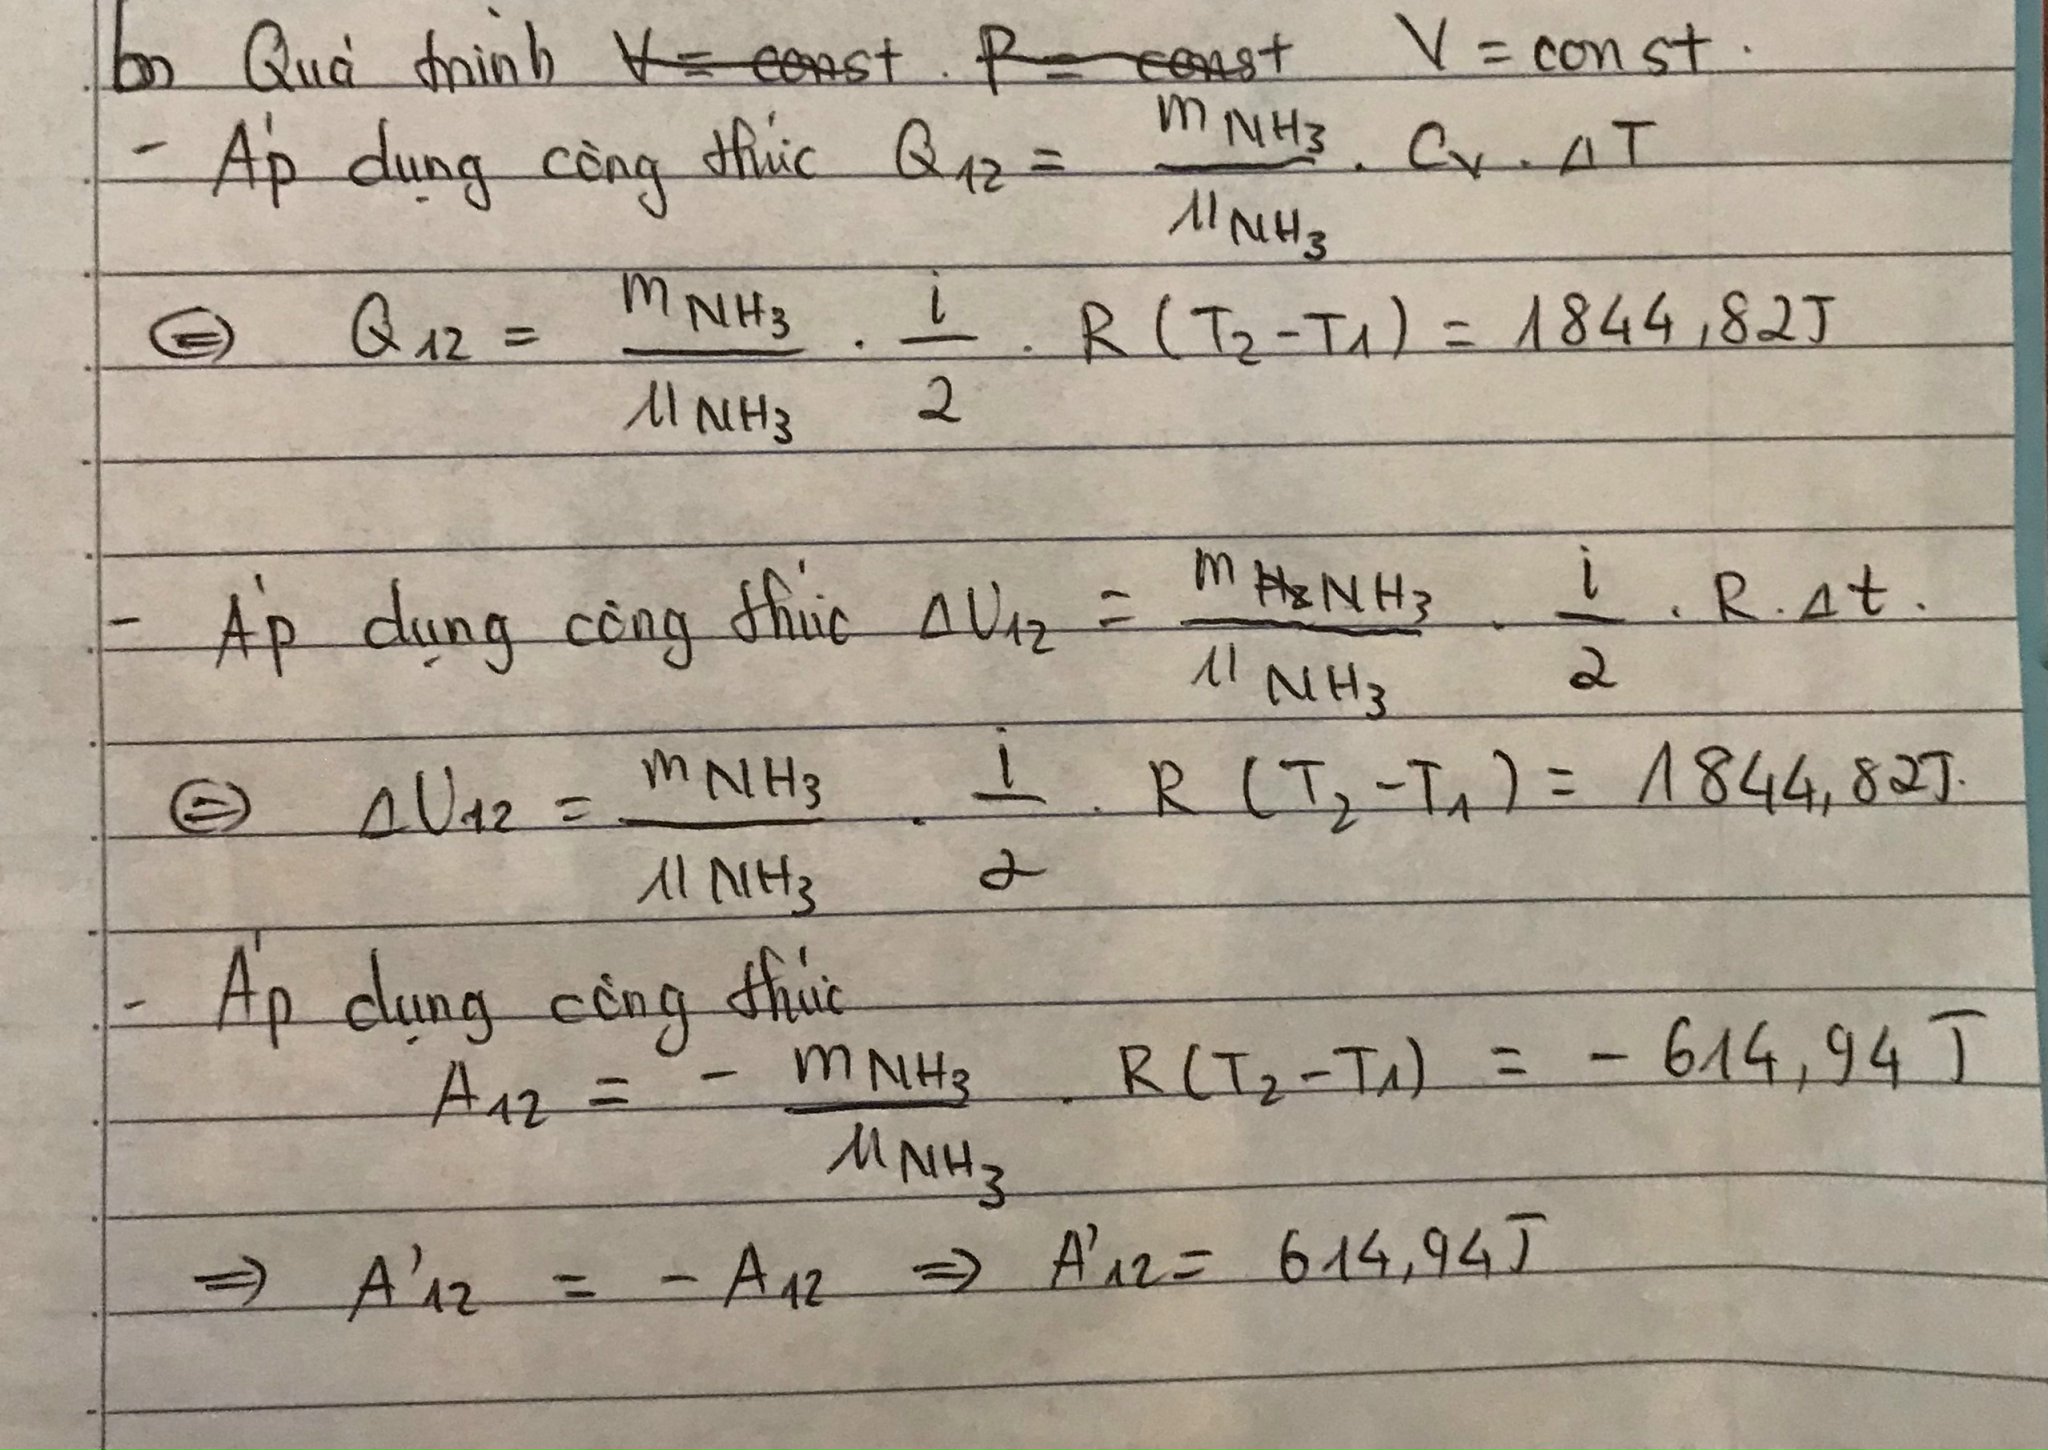 b, Quá trình V = const. P = const V = const.
- Áp dụng công thức Q12 = mNH3/μNH3 . Cv . ΔT
⇔ Q12 = mNH3/μNH3 . i/2 . R (T2-T1) = 1844,82J
- Áp dụng công thức ΔU12 = mH2NH3/μNH3 . i/2 . R.Δt.
⇔ ΔU12 = mNH3/μNH3 . i/2 . R (T2-T1) = 1844,82J.
- Áp dụng công thức
A12 = - mNH3/μNH3 . R(T2-T1) = - 614,94J
⇒ A'12 = - A12 ⇒ A'12 = 614,94J